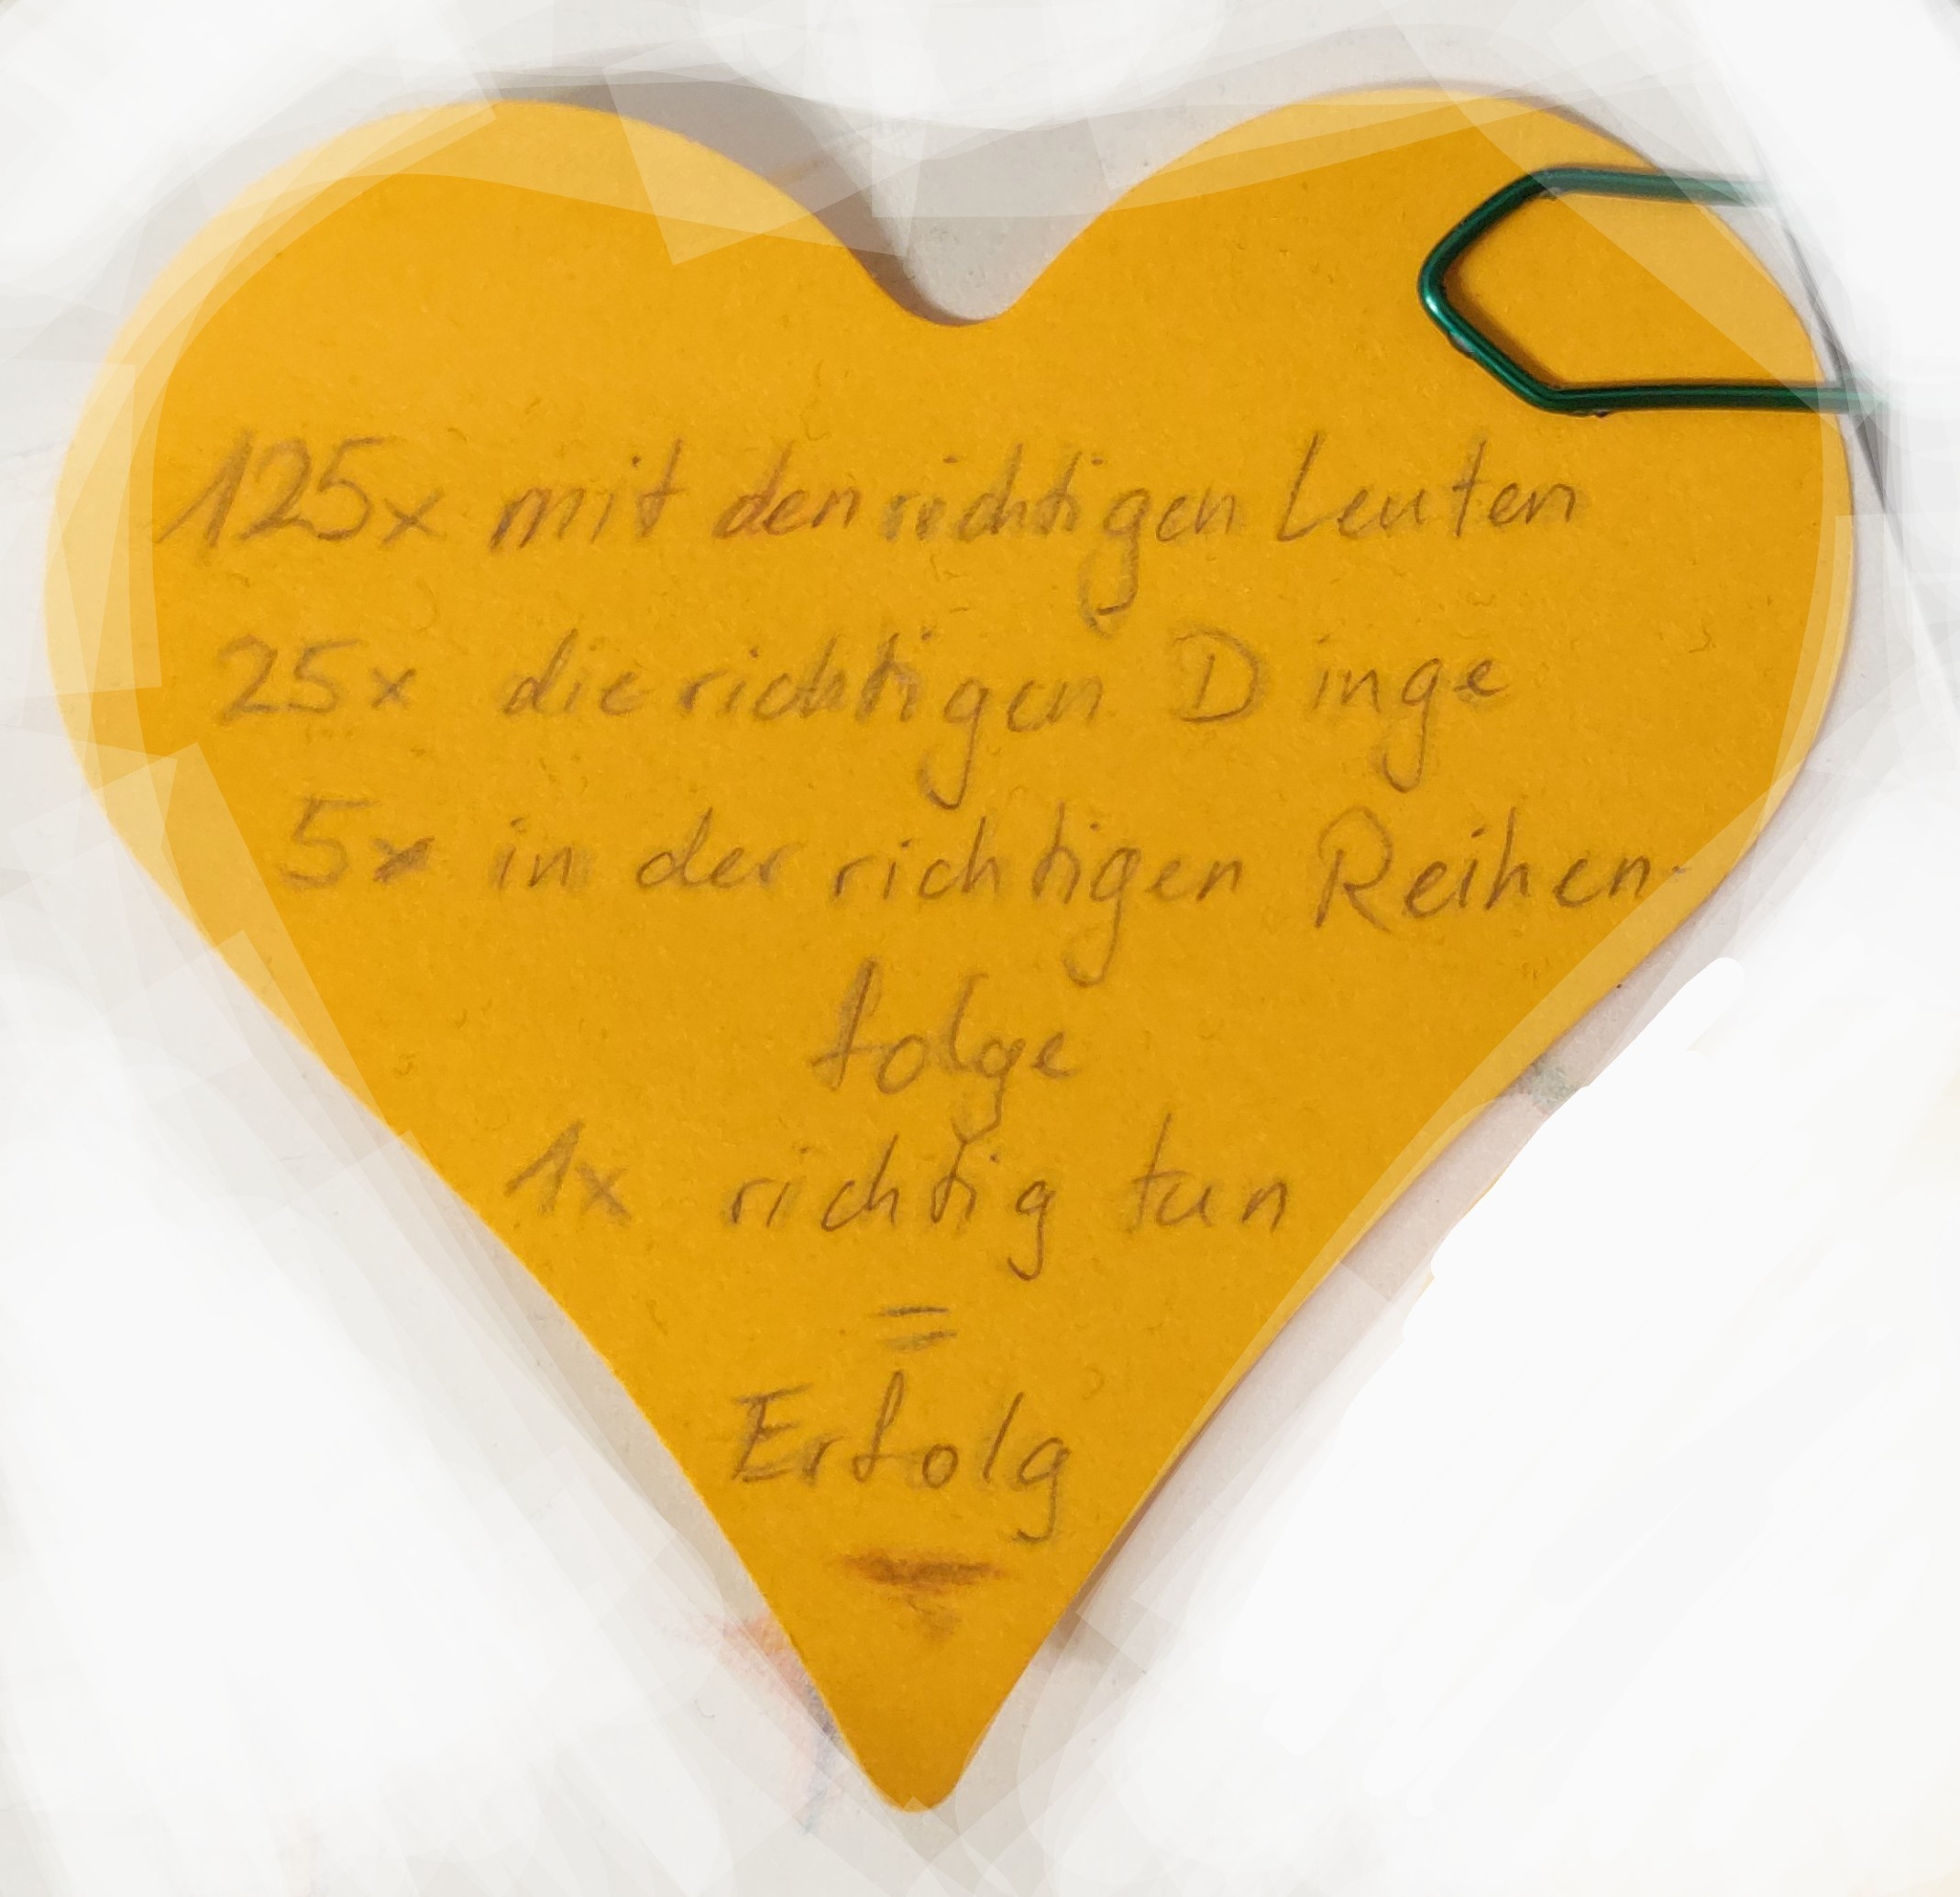 125x mit den richtigen Leuten
25x die richtigen Dinge
5x in der richtigen Reihen-
folge
1x richtig tun
=
Erfolg